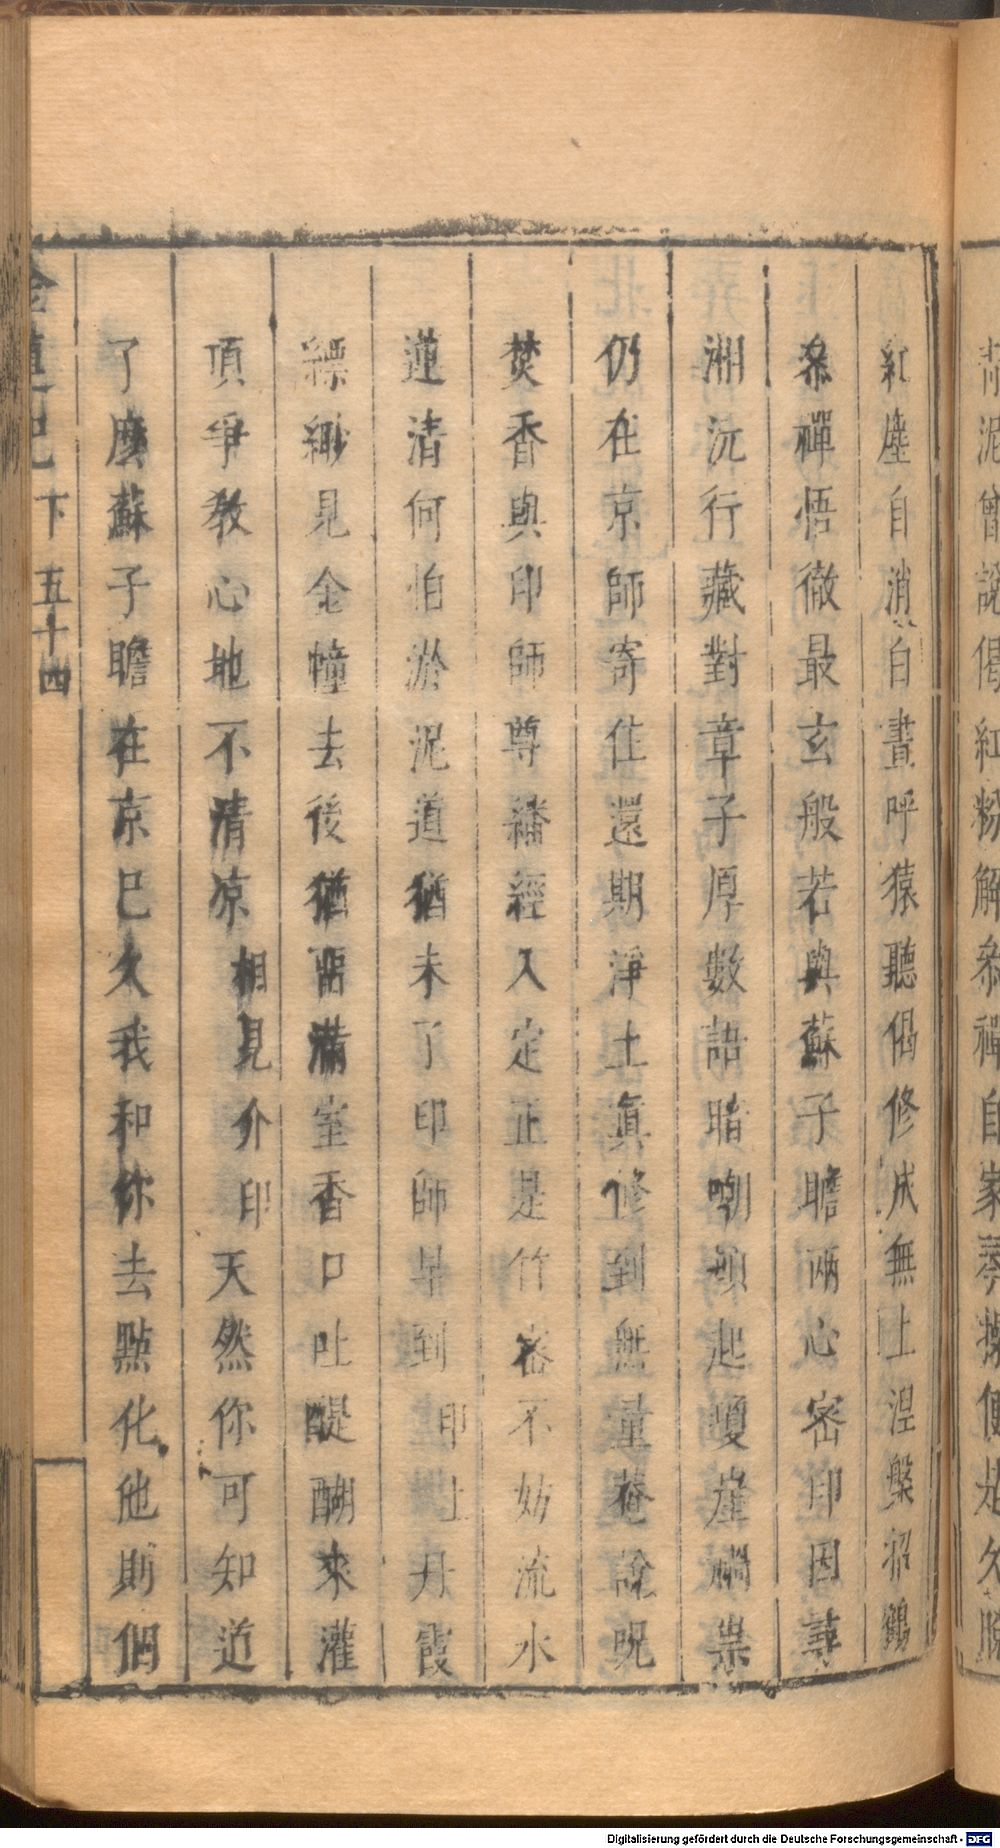 紅塵自消白晝呼猿聽偈修成無上涅槃招鶴
叅禪悟徹最玄般若與蘇子瞻兩心密印因尋
湘沅行藏對章子厚數語暗嘲頓起瓊崖禍祟
仍在京師寄住還期淨土眞修到無量菴說呪
焚香與印師尊繙經入定正是竹密不妨流水
蓮清何怕淤泥道猶未了印師早到 印上 丹霞
縹緲見金幢去後猶留滿室香口吐醍醐來灌
頂爭教心地不清凉 相見介 印 天然你可知道
了麼蘇子瞻在京已久我和你去點化他則個
下 五十四
青泥曾說偈紅粉解叅禪自家琴操便是久
Digitalisierung gefördert durch die Deutsche Forschungsgemeinschaft - DFG